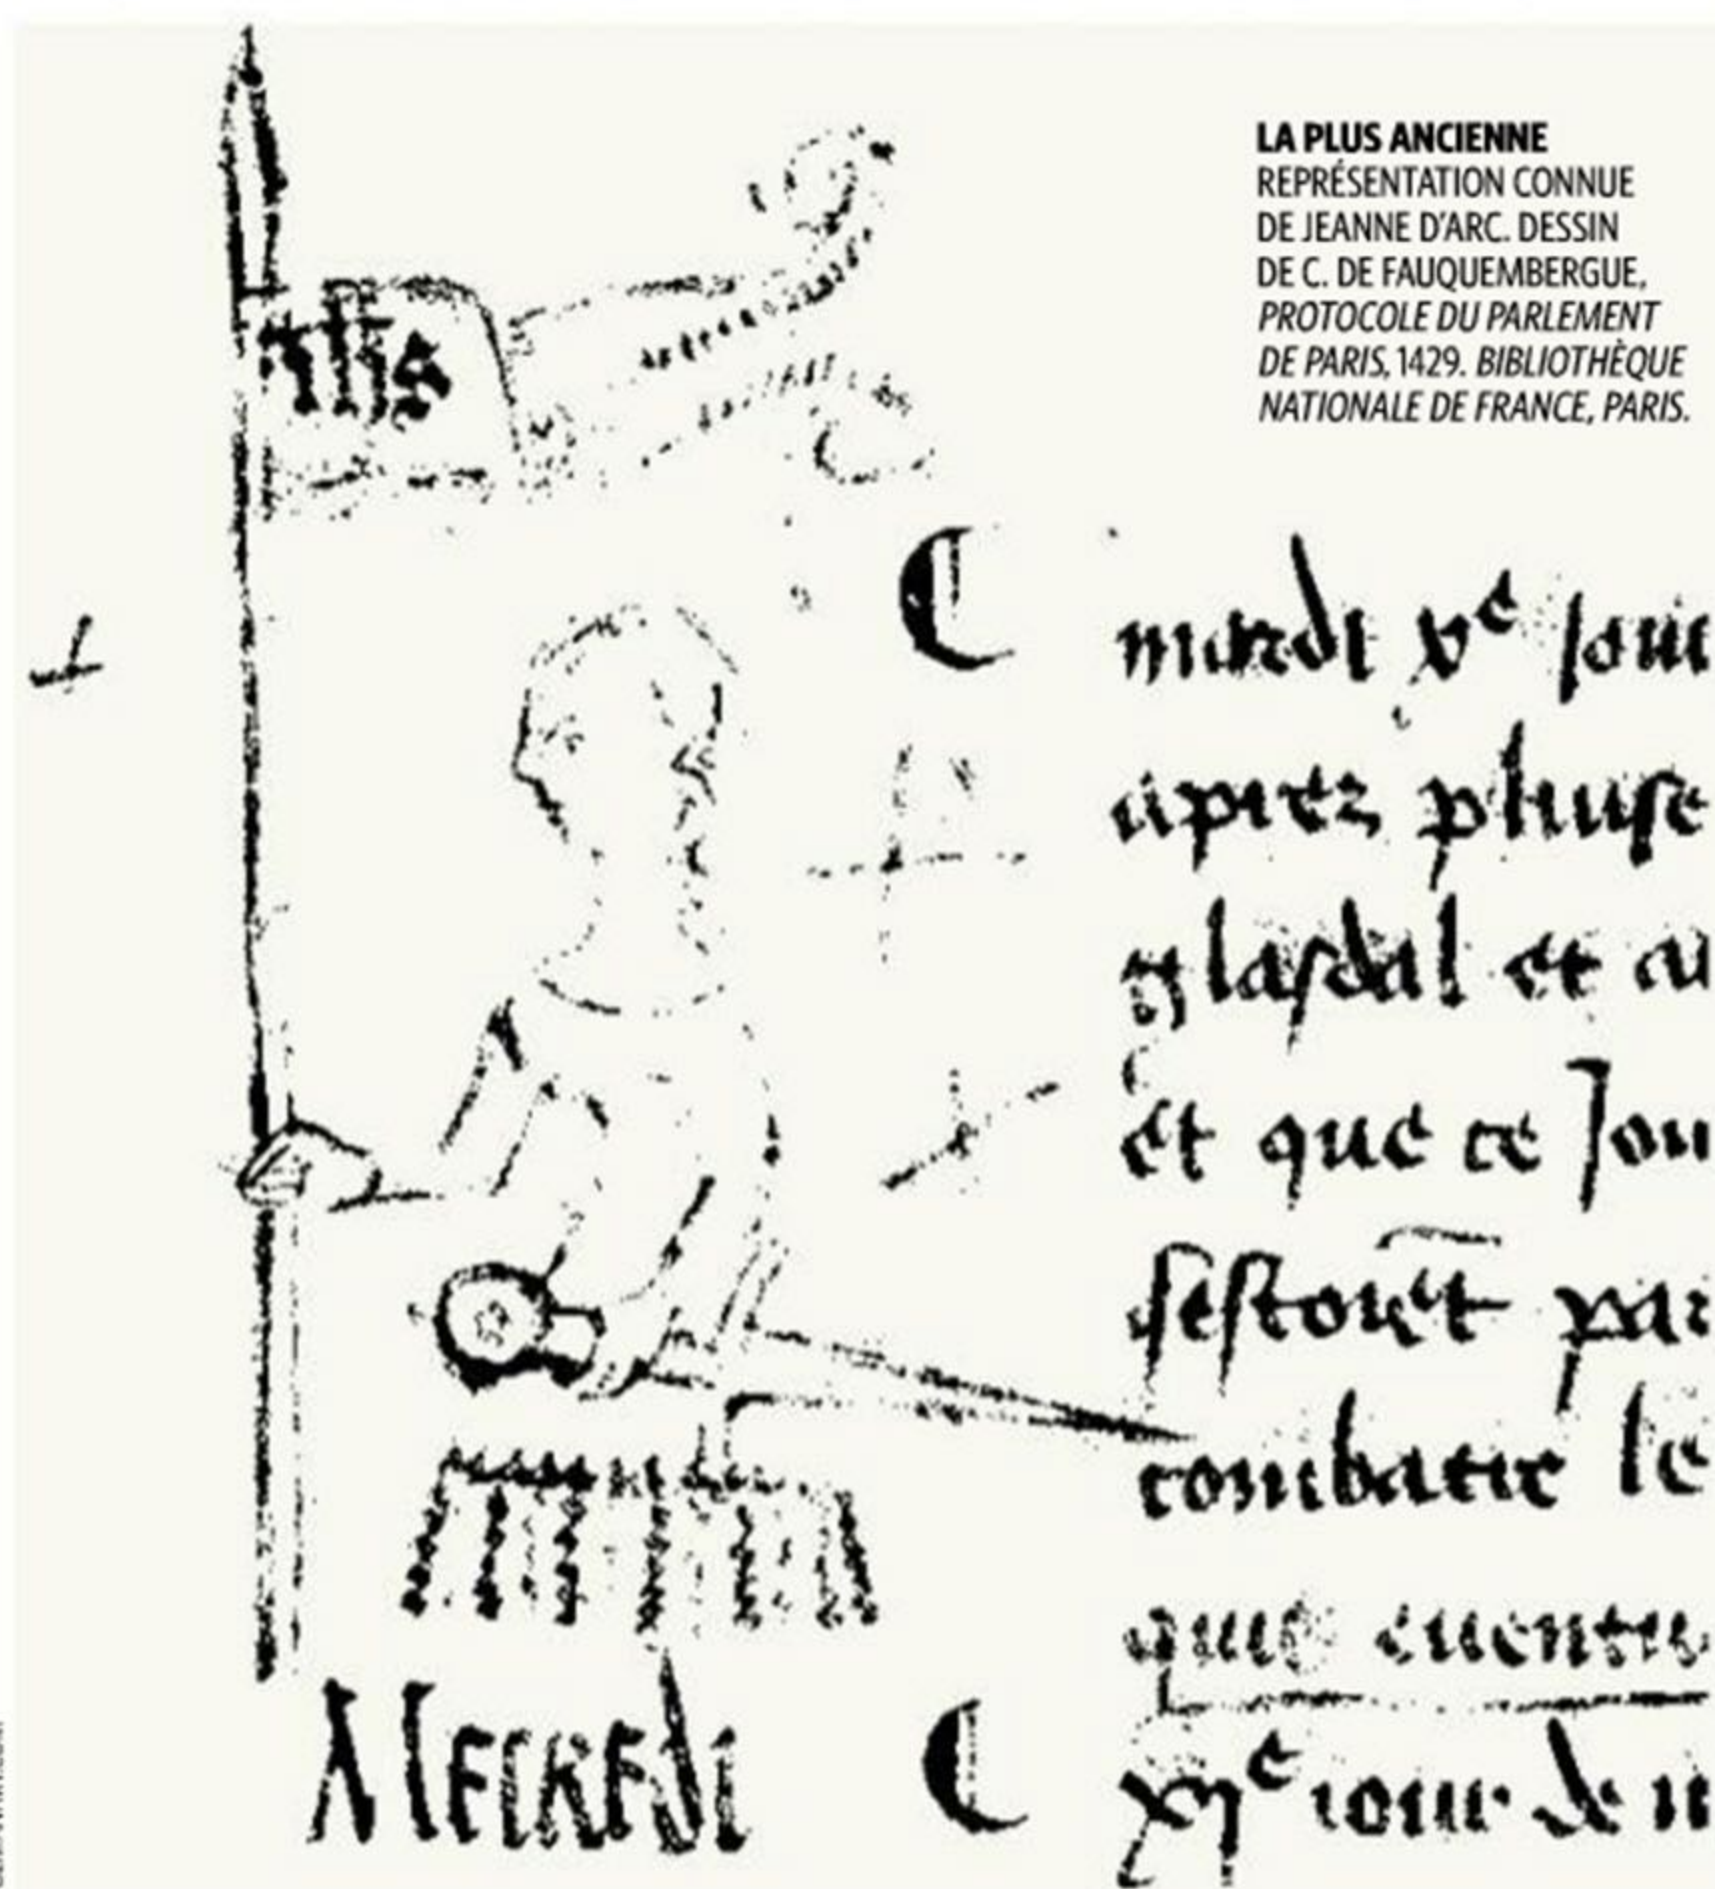 LA PLUS ANCIENNE
REPRÉSENTATION CONNUE
DE JEANNE D'ARC. DESSIN
DE C. DE FAUQUEMBERGUE,
PROTOCOLE DU PARLEMENT
DE PARIS, 1429. BIBLIOTHÈQUE
NATIONALE DE FRANCE, PARIS.
ihs
mardi xe jour
aprez pluse
glasdal et au
et que ce Jou
combatre le
que euentu
xje jour de
Mecredi